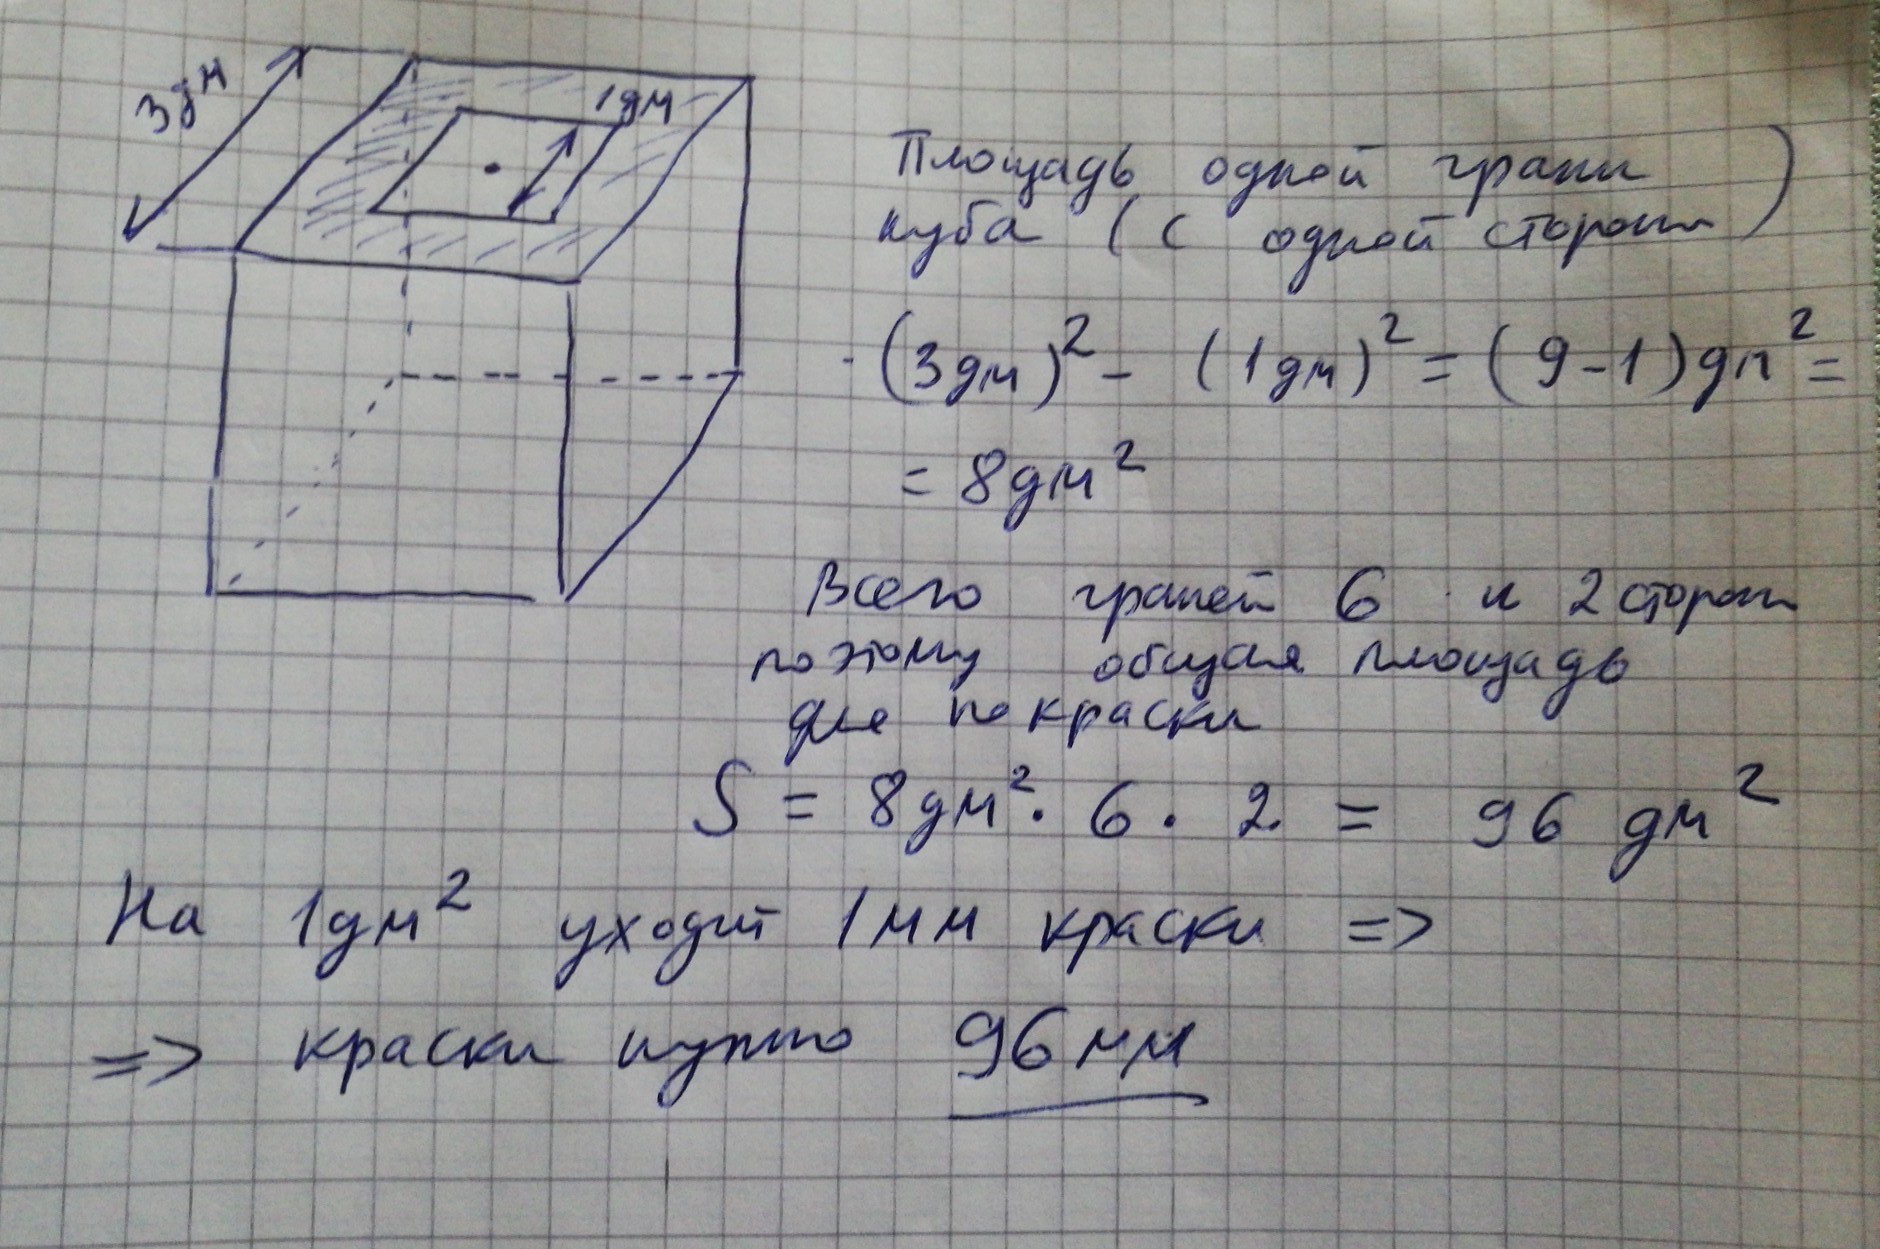 3дм
1дм
Площадь одной грани
куба (с одной стороны)
(3дм)² - (1дм)² = (9-1)дм² =
= 8дм²
Всего граней 6 и 2 стороны
поэтому общая площадь
для покраски
S = 8дм² · 6 · 2 = 96 дм²
На 1дм² уходит 1мл краски =>
=> краски нужно 96мл